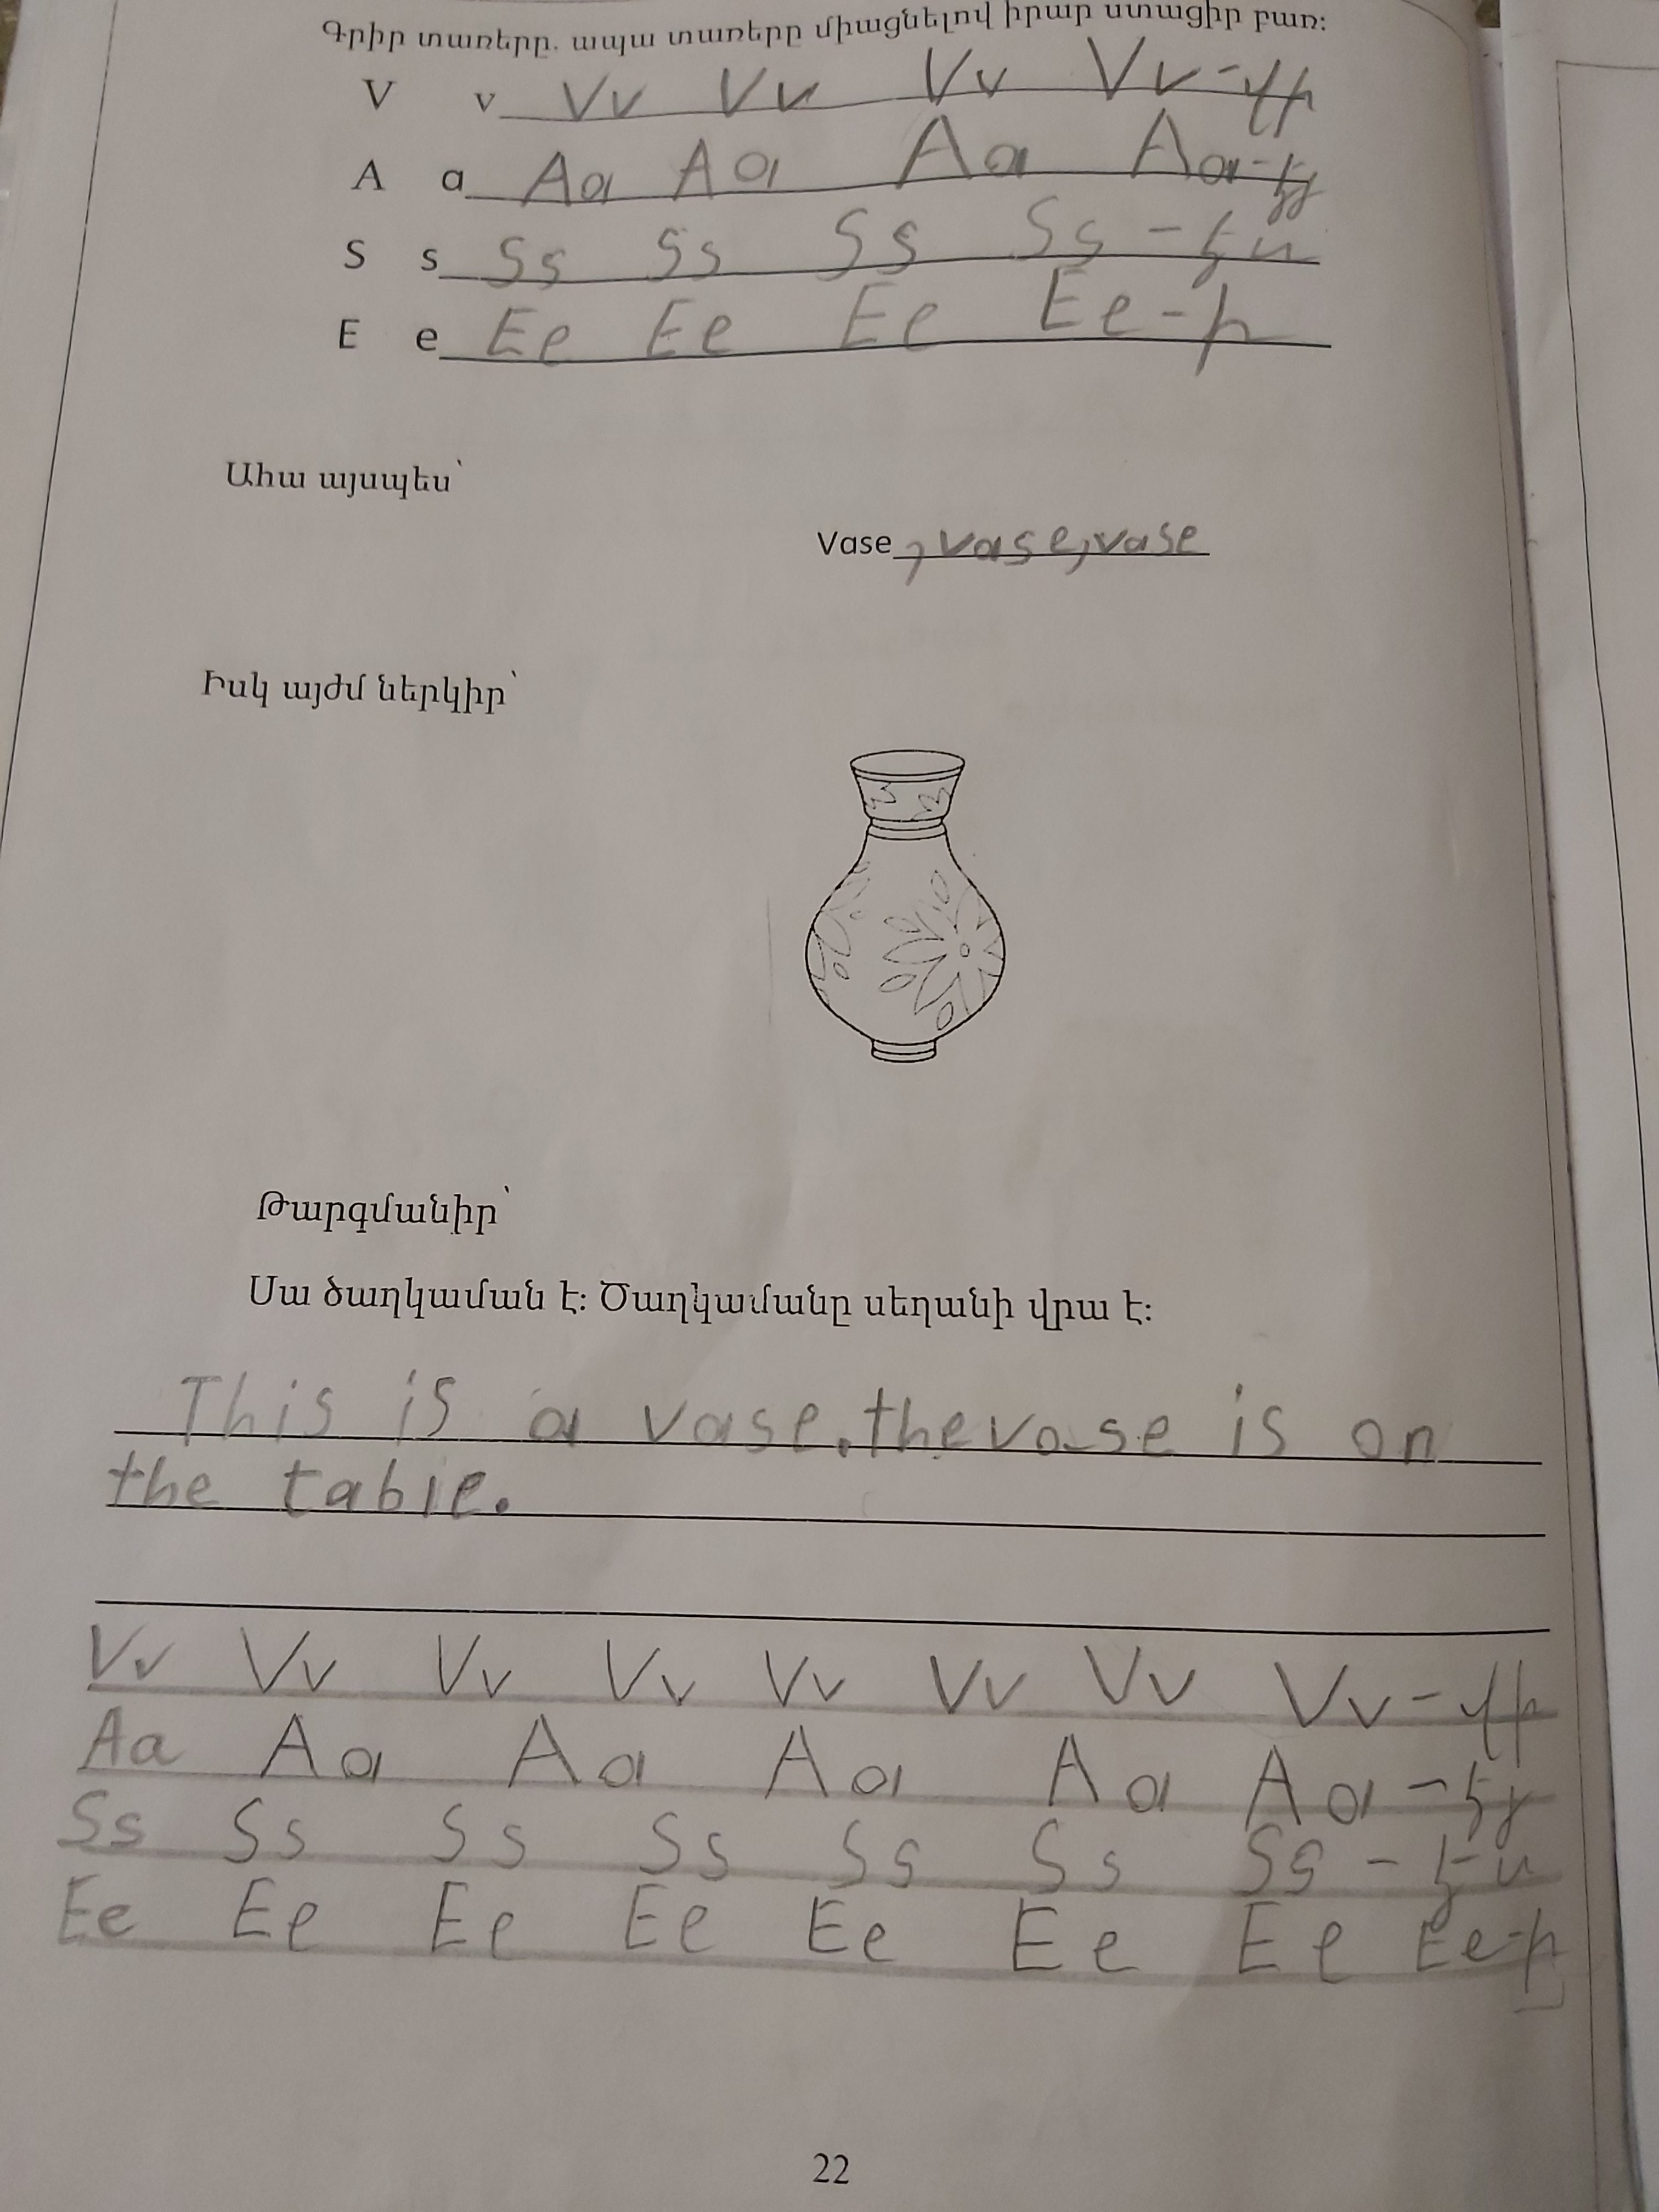 Գրիր տառերը. ապա տառերը միացնելով իրար ստացիր բառ:
V v Vv Vv Vv Vv-վի
A a Aa Aa Aa Aa-էյ
S s Ss Ss Ss Ss - էս
E e Ee Ee Ee Ee-ի
Ահա այսպես՝
Vase , vase, vase
Իսկ այժմ ներկիր՝
Թարգմանիր՝
Սա ծաղկաման է: Ծաղկամանը սեղանի վրա է:
This is a vase.the vase is on
the table.
Vv Vv Vv Vv Vv Vv Vv Vv-վի
Aa Aa Aa Aa Aa Aa-էյ
Ss Ss Ss Ss Ss Ss Ss - էս
Ee Ee Ee Ee Ee Ee Ee Ee-ի
22